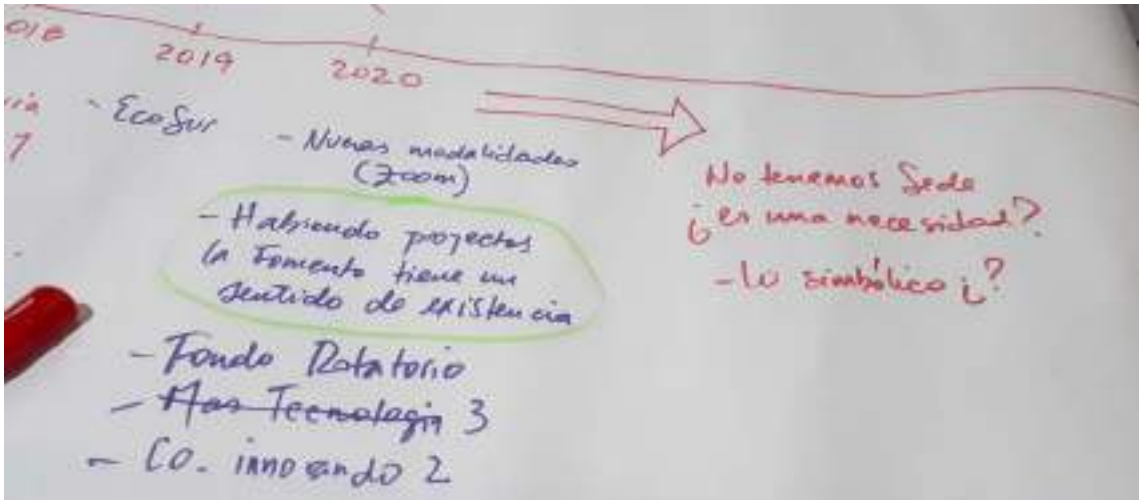 2019
2020
- EcoSur
- Nuevas modalidades
(Zoom)
- Habiendo proyectos
la Fomento tiene un
sentido de existencia
- Fondo Rotatorio
- Mas Tecnologia 3
- Co. innovando 2
No tenemos Sede
¿es una necesidad?
- lo simbólico ¿?